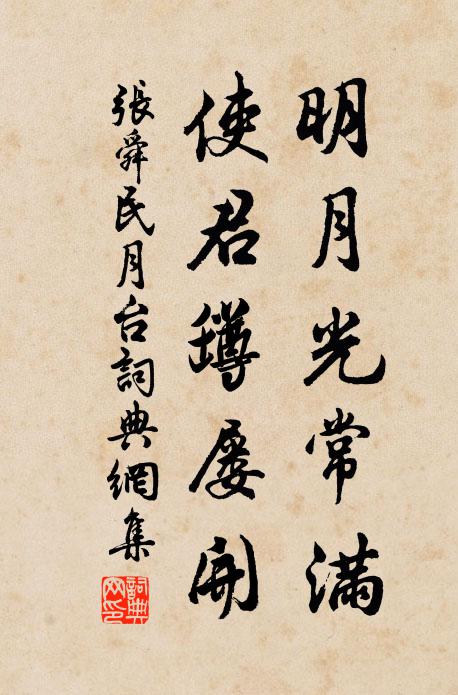 明月光常滿
使君罇屡開
張舜民月台詞典網集
詞典網印